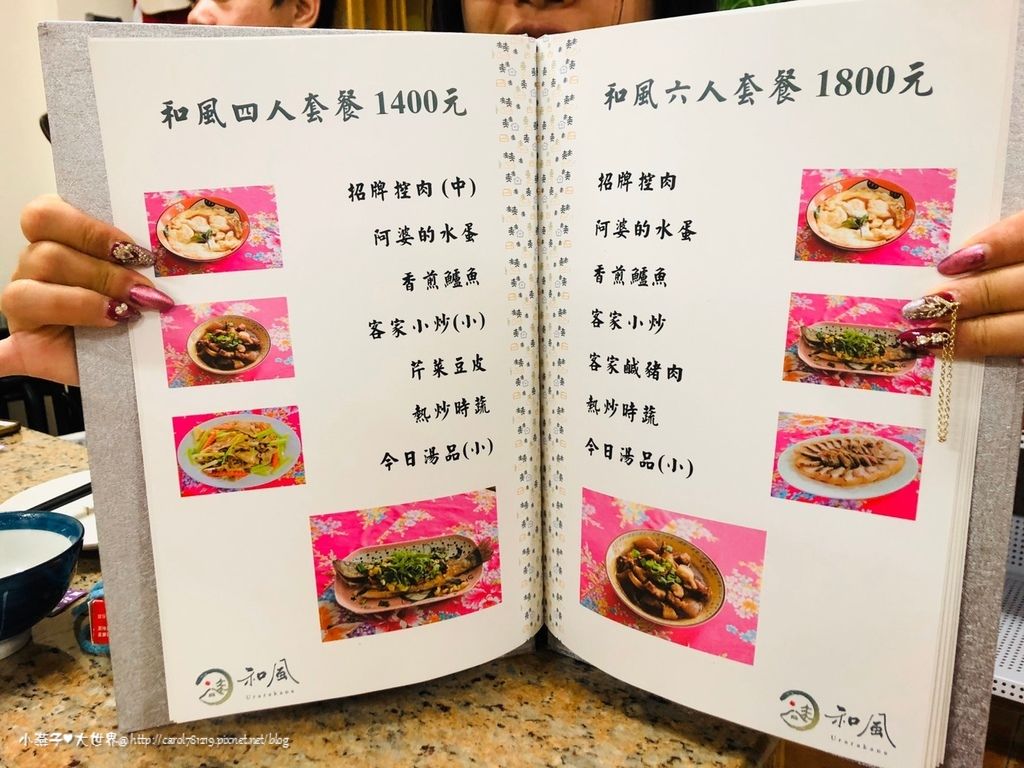 和風四人套餐 1400元
招牌控肉 (中)
阿婆的水蛋
香煎鱸魚
客家小炒(小)
芹菜豆皮
熱炒時蔬
今日湯品(小)
和風
Urarakana
和風六人套餐 1800元
招牌控肉
阿婆的水蛋
香煎鱸魚
客家小炒
客家鹹豬肉
熱炒時蔬
今日湯品(小)
和風
Urarakana
小燕子♥大世界@http://carol781219.pixnet.net/blog